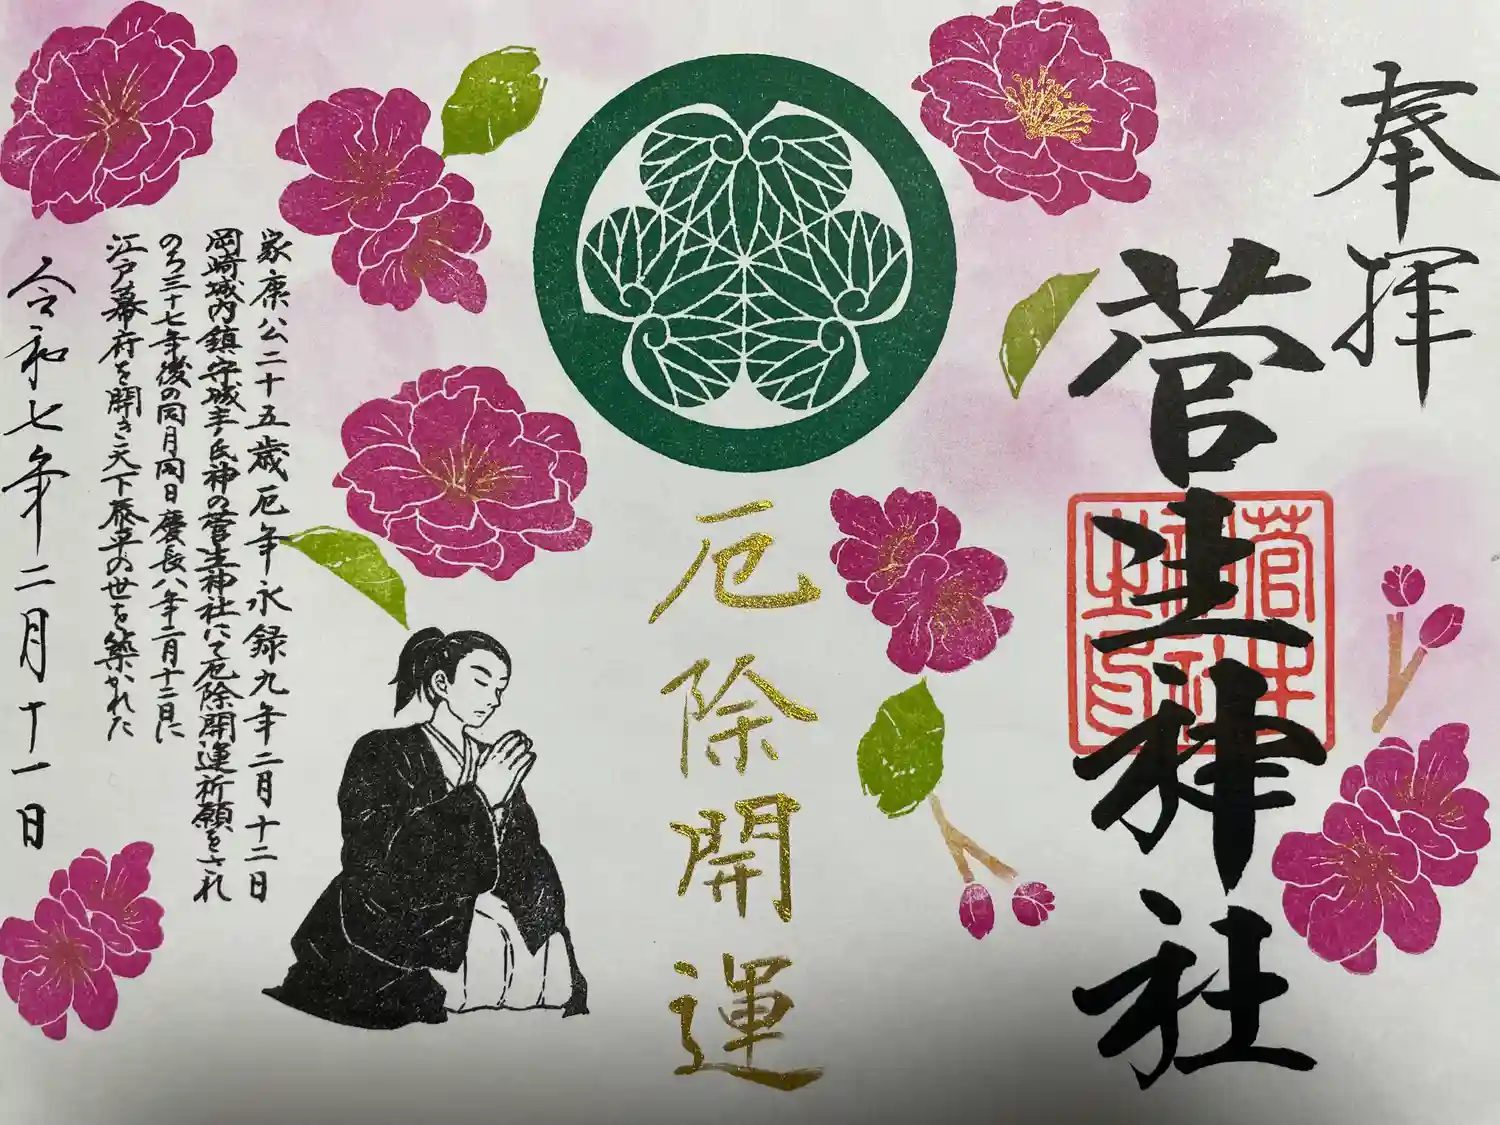 奉拝
菅生神社
厄除開運
家康公二十五歳厄年永録九年二月十二日
岡崎城内鎮守城主氏神の菅生神社にて厄除開運祈願をされ
のち三十七年後の同月同日慶長八年二月十二日に
江戸幕府を開き天下泰平の世を築かれた
令和七年二月十一日